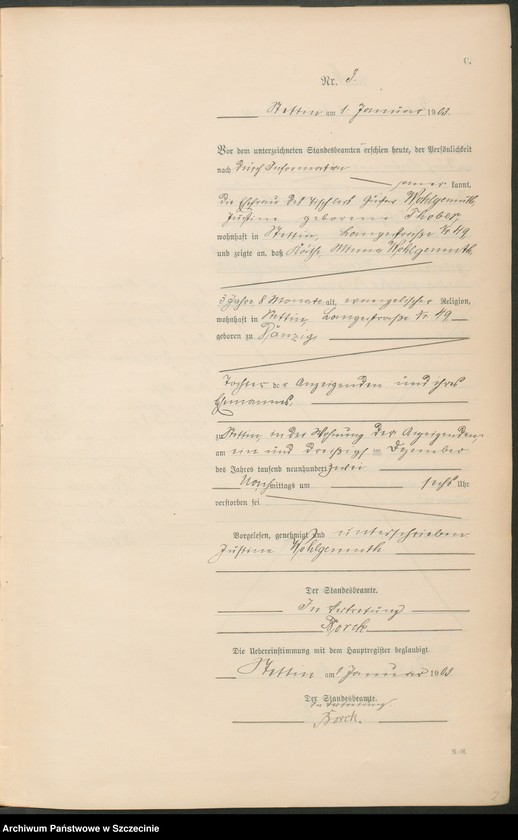 C.
Nr. 3.
Stettin am 1 Januar 1903.
Vor dem unterzeichneten Standesbeamten erschien heute, der Persönlichkeit
nach durch
kannt,
die Ehefrau des Tischlers Wohlgemuth,
Justine geborene
wohnhaft in Stettin, Langestraße Nr 49
und zeigte an, daß Wohlgemuth,
3 Jahre 8 Monate alt, evangelischer Religion,
wohnhaft in Stettin, Langestraße Nr. 49
geboren zu
Tochter der Anzeigenden und ihres
Ehemannes,
zu Stettin, in der Wohnung der Anzeigenden
am ein und dreißigsten Dezember
des Jahres tausend neunhundert zwei
Nachmittags um sechs Uhr
verstorben sei
Vorgelesen, genehmigt und unterschrieben
Justine Wohlgemuth
Der Standesbeamte.
In Vertretung
Borck.
Die Uebereinstimmung mit dem Hauptregister beglaubigt.
Stettin am 1 Januar 1903.
Der Standesbeamte.
In Vertretung
Borck.
Archiwum Państwowe w Szczecinie